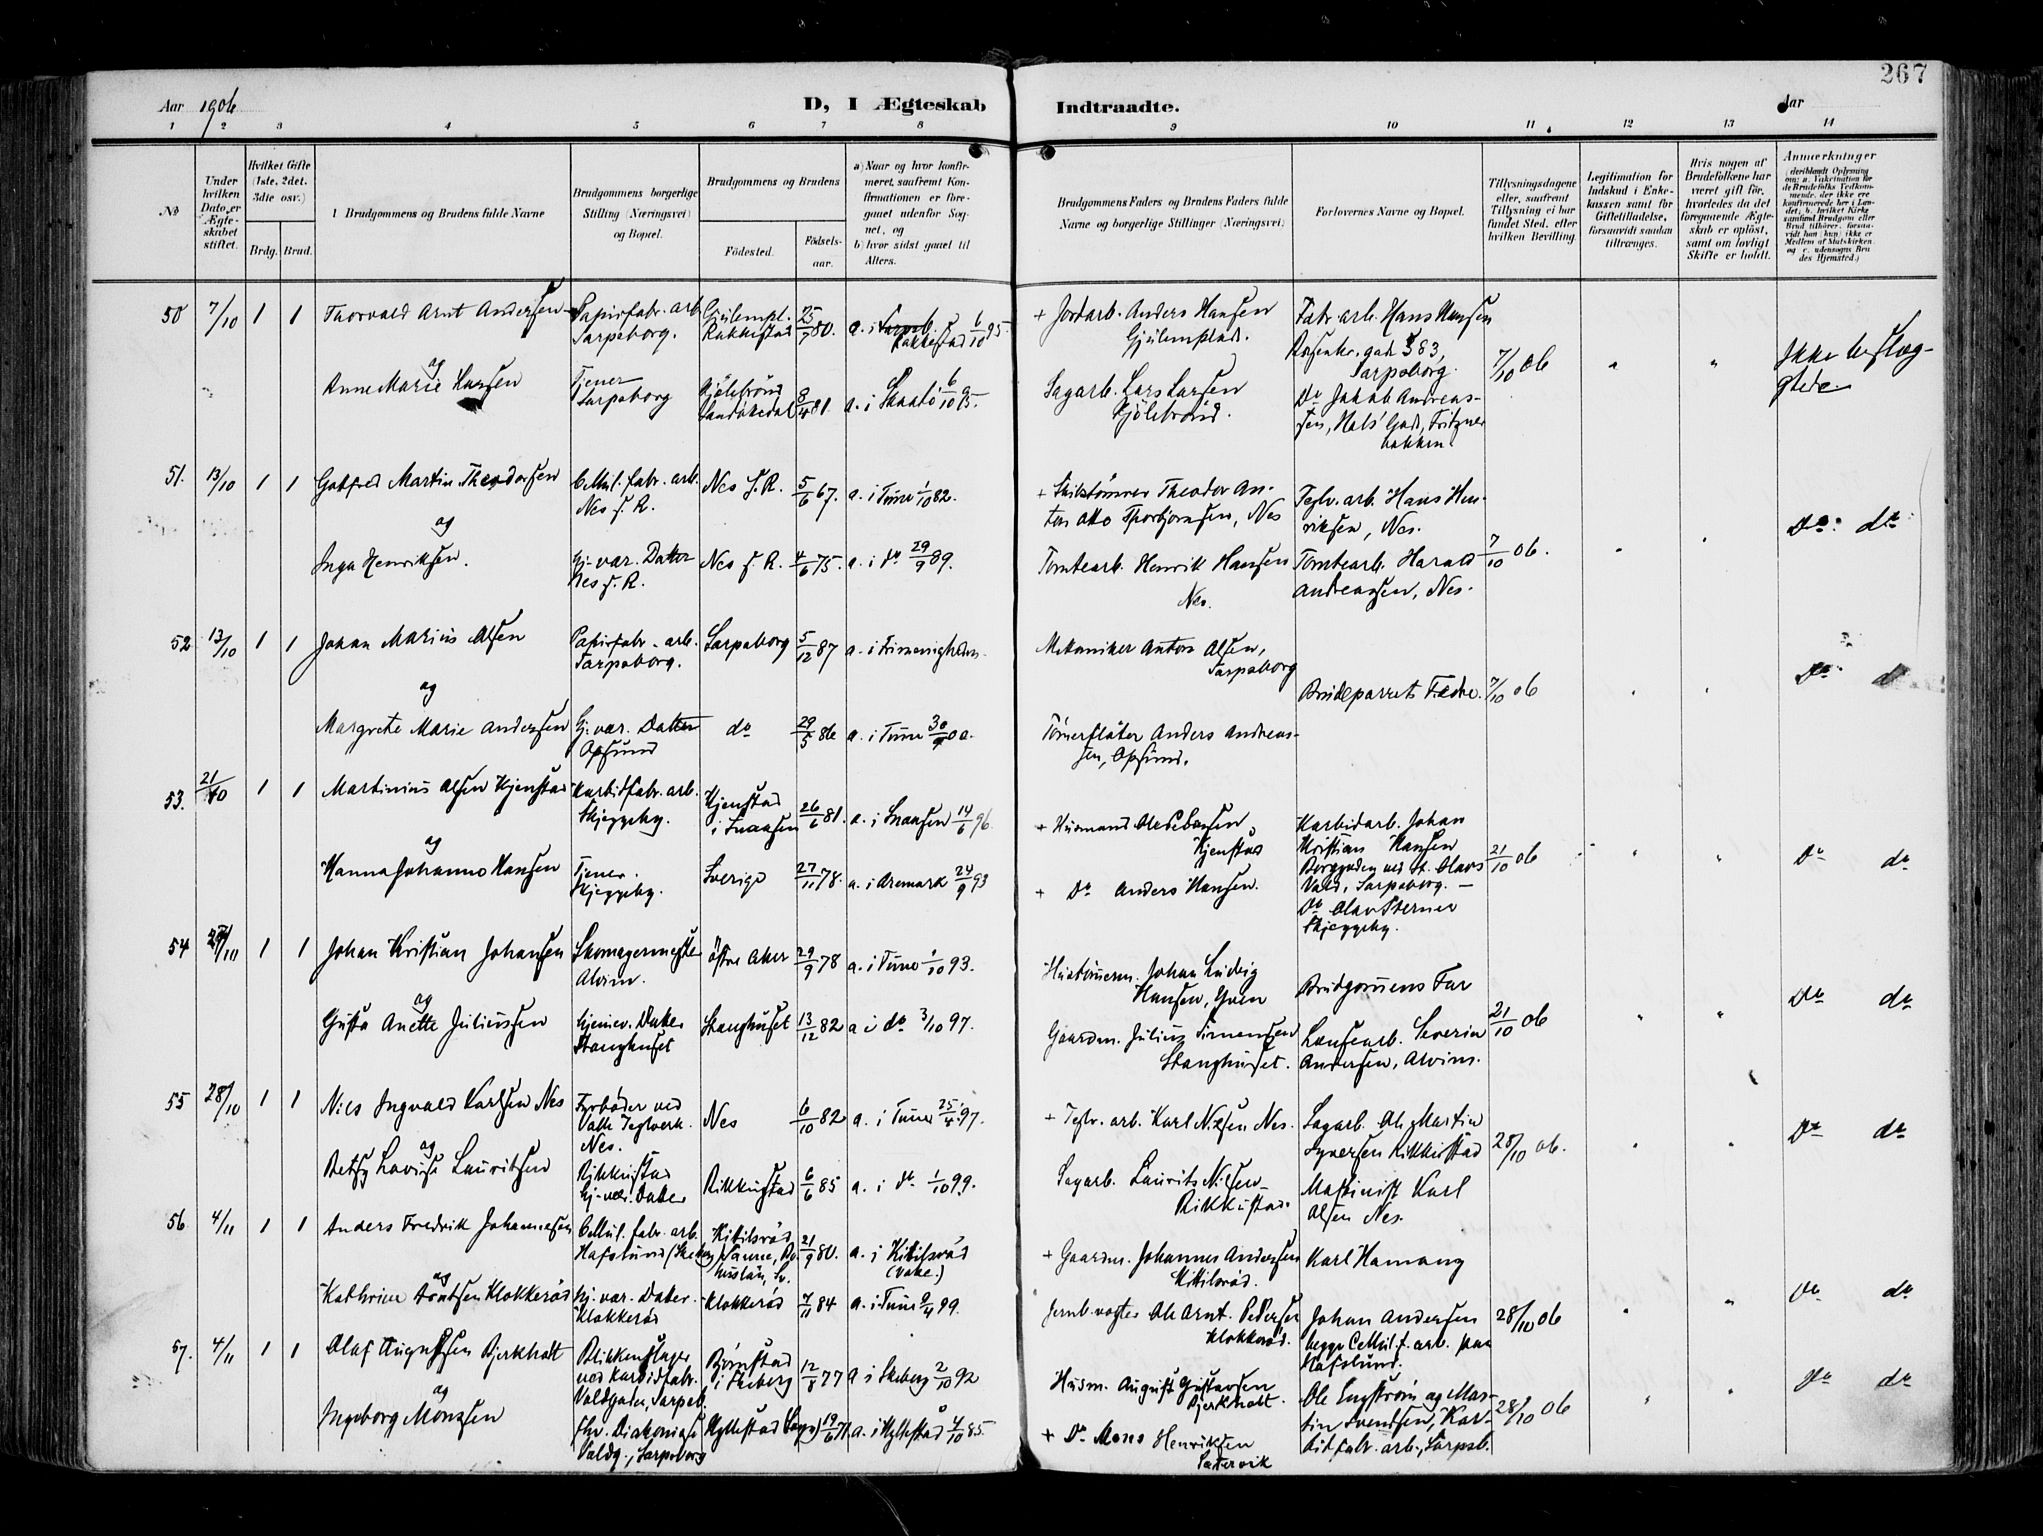 267
Aar 1906
D, I Ægteskab Indtraadte.
Aar
1 2 3 4 5 6 7 8 9 10 11 12 13 14
No
Under hvilken Dato er Ægteskabet stiftet.
Hvilket Gifte (1ste, 2det, 3die osv.)
Brdg. Brud.
Brudgommens og Brudens fulde Navne
Brudgommens borgerlige Stilling (Næringsvei) og Bopæl.
Brudgommens og Brudens
Fødested.
Fødselsaar.
a) Naar og hvor konfirmeret, saafremt Konfirmationen er foregaaet udenfor Sognet, og
b) hvor sidst gaaet til Alters.
Brudgommens Faders og Brudens Faders fulde Navne og borgerlige Stillinger (Næringsvei)
Forlovernes Navne og Bopæl.
Tillysningsdagene eller, saafremt Tillysning ei har fundet Sted, efter hvilken Bevilling.
Legitimation for Indskud i Enkekassen samt for Giftetilladelse, forsaavidt saadan tiltrænges.
Hvis nogen af Brudefolkene har været gift før, hvorledes da det foregaaende Ægteskab er opløst, samt om lovligt Skifte er holdt.
Anmerkninger
50 7/10 1 1 Thorvald Arnt Andersen Papirfabr. arb. Sarpsborg. Gjulempl. Rakkestad 25/9 80. a. i Rakkestad 6/10 95.
+ Jordarb. Anders Hansen Gjulemplads.
Fabr. arb. Hans Hansen Rosenkr. gade 383, Sarpsborg.
og
Anne Marie Larsen Tjener Sarpsborg Kjølebrønd Sandøkedal 8/4 81. a. i Skaatø 6/10 95.
Sagarb. Lars Larsen Kjølebrønd.
Do Jakob Andreassen, Hals' Gad, Fritznerbakken.
7/10 06 " " Ikke beslægtede.
51. 13/10 1 1 Gotfred Martin Theodorsen Cellul. fabr. arb. Nes s. R. Nes s. R. 5/6 67. a. i Tune 1/10 82.
Theodor Anton Otto Thorbjørnsen, Nes
Teglv. arb. Hans Henriksen, Nes.
og
Inga Henriksen. Hj. vær. Datter Nes s. R. Nes s. R. 4/6 75. a. i do 29/9 89.
Tomtearb. Henrik Hansen Nes.
Tomtearb. Harald Andreassen, Nes.
7/10 06. Do do
52 13/10 1 1 Johan Marius Olsen Papirfabr. arb. Sarpsborg. Sarpsborg 5/12 87 a. i Frimenigheden
Mekaniker Anton Olsen, Sarpsborg
og
Brudeparrets Fædre. 7/10 06 Do d
Margrete Marie Andersen Hj. vær. Datter Opsund do 29/5 86 a. i Tune 30/9 00.
Tømmerfløter Anders Andreassen, Opsund.
53. 21/10 1 1 Martinius Olsen Kjenstad Karbidfabr. arb. Skjeggeby. Kjenstad i Snaasen 26/6 81. a. i Snaasen 14/6 96.
+ Husmand Kjenstad
Karbidarb. Johan Kristian Hansen Borggaden ved St. Olavs Vold, Sarpsborg. —
og
Hanna Johanne Hansen Tjener. Skjeggeby. Sverige 27/11 78. a. i Aremark 24/9 93
+ Do Anders Hansen.
Do Olav Sterner Skjeggeby.
21/10 06 " " Do do
54 1 1 Johan Kristian Johansen Skomagermester Alvim. Østre Aker 29/9 78 a. i Tune 1/10 93.
Hustømm. Johan Ludvig Hansen, Yven
Brudgommens Far
og
Gusta Anette Juliussen Hjemv. Datter Stanghuset Stanghuset 13/12 82 a i do 3/10 97.
Gaardm. Julius Simensen Stanghuset.
Lænsearb. Severin Andersen, Alvim.
21/10 06 " " Do do
55 28/10 1 1 Nils Ingvald Karlsen Nes Fyrbøder ved Valle Teglverk. Nes. Nes 6/10 82 a. i Tune 25/4 97.
+ Teglv. arb. Karl Nilsen Nes.
Sagarb. Ole Martin Syversen Rikkestad
og
Betsy Lovise Lauritsen Rikkustad Hj. vær. Datter Rikkustad 6/6 85 a. i do 1/10 99.
Sagarb. Laurits Nilsen Rikkustad.
Maskinist Karl Olsen Nes.
28/10 06. Do do
56 4/11 1 1 Anders Fredrik Johannesen Cellul. fabr. arb. Hafslund (Skeberg) Kikilsrød 21/9 80. a. i Kikilsrød
+ Gaardm. Johannes Andersen Kikilsrød.
Karl Hamang
og
Kathrine Arntsen Klokkerød Hj. vær. Datter. Klokkerød Klokkerød 7/11 84 a. i Tune 99.
Jernb. vogter Ole Arnt Pedersen Klokkerød.
Johan Andersen begge Cellul. f. arb. paa Hafslund.
28/10 06 Do do
57. 4/11 1 1 Olaf Augustsen Bjerkholt Blikkenslager ved Karbidfabr. Voldgaden, Sarpsb. Bjørnstad i Skeberg 12/8 77 a i Skeberg 2/10 92
Husm. August Gustavsen Bjerkholt
Ole Engstrøm og Martin Svendsen, Karbidfabr. arb., Sarpsb.
og
Ingeborg Monsen Diakonisse Voldg., Sarpsborg Hyllestad (Sogn) 19/6 71. a. i Hyllestad 4/10 85
+ Do Mons Henriksen Sætervik
28/10 06 Do do